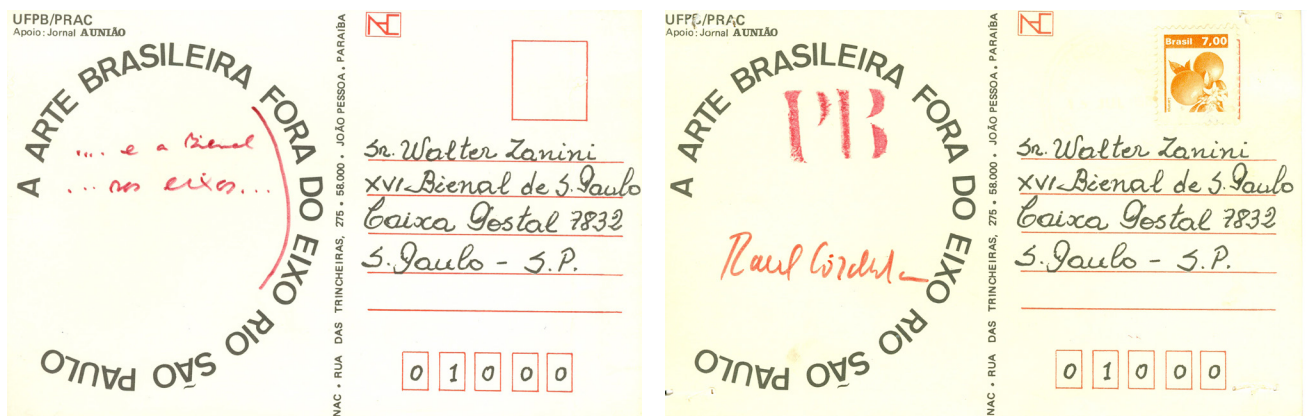 UFPB/PRAC
Apoio: Jornal A UNIÃO
A ARTE BRASILEIRA FORA DO EIXO RIO SÃO PAULO
.... e a Bienal
... nos eixos...
NAC • RUA DAS TRINCHEIRAS, 275 • 58.000 • JOÃO PESSOA, PARAÍBA
NAC
Sr. Walter Zanini
XVI Bienal de S. Paulo
Caixa Postal 7832
S. Paulo - S.P.
0 1 0 0 0
UFPB/PRAC
Apoio: Jornal A UNIÃO
A ARTE BRASILEIRA FORA DO EIXO RIO SÃO PAULO
PB
Raul Córdula
NAC • RUA DAS TRINCHEIRAS, 275 • 58.000 • JOÃO PESSOA, PARAÍBA
NAC
Brasil 7,00
Sr. Walter Zanini
XVI Bienal de S. Paulo
Caixa Postal 7832
S. Paulo - S.P.
0 1 0 0 0